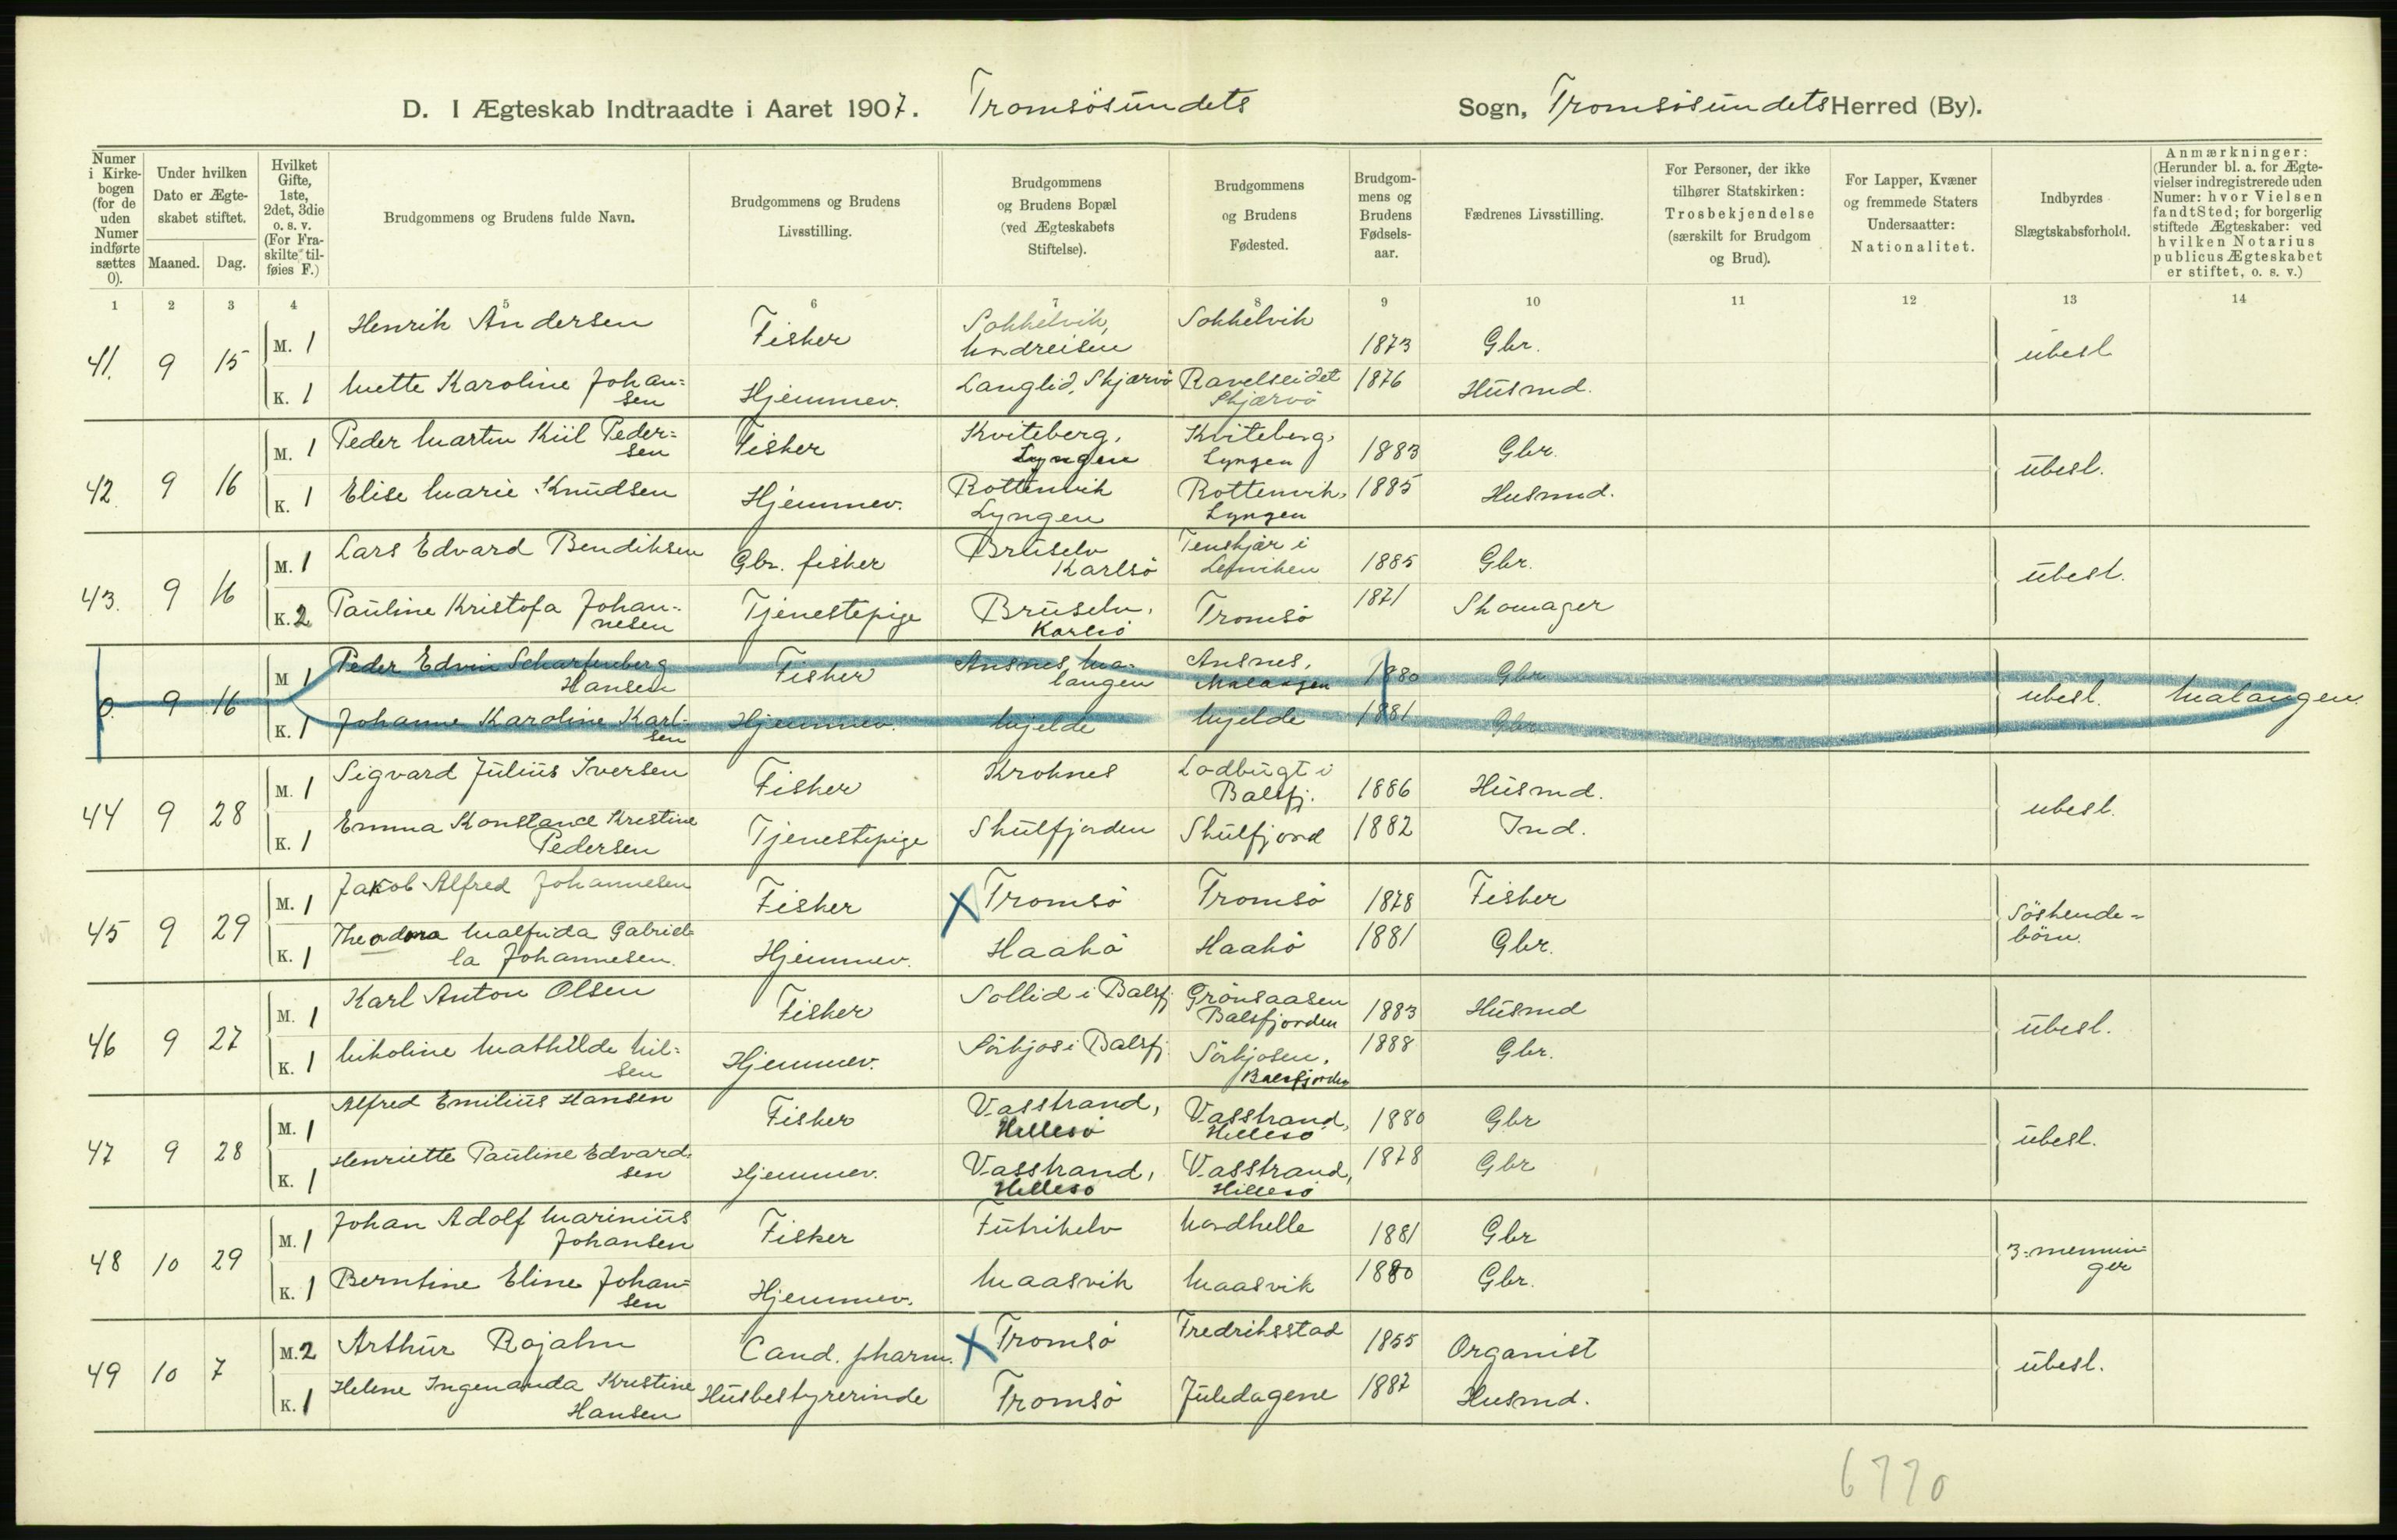 D. I Ægteskab Indtraadte i Aaret 1907. Tromsösundets Sogn, Tromsösundets Herred (By).
Numer i Kirkebogen (for de uden Numer indførte sættes 0).
Under hvilken Dato er Ægteskabet stiftet.
Maaned. Dag.
Hvilket Gifte, 1ste, 2det, 3die o. s. v. (For Fraskilte tilføies F.)
Brudgommens og Brudens fulde Navn.
Brudgommens og Brudens Livsstilling.
Brudgommens og Brudens Bopæl (ved Ægteskabets Stiftelse).
Brudgommens og Brudens Fødested.
Brudgommens og Brudens Fødselsaar.
Fædrenes Livsstilling.
For Personer, der ikke tilhører Statskirken: Trosbekjendelse (særskilt for Brudgom og Brud).
For Lapper, Kvæner og fremmede Staters Undersaatter: Nationalitet.
Indbyrdes Slægtskabsforhold.
Anmærkninger: (Herunder bl. a. for Ægtevielser indregistrerede uden Numer: hvor Vielsen fandt Sted; for borgerlig stiftede Ægteskaber: ved hvilken Notarius publicus Ægteskabet er stiftet, o. s. v.)
1 2 3 4 5 6 7 8 9 10 11 12 13 14
41. 9 15 M. 1 Henrik Andersen Fisker Sokkelvik, Nordreisen Sokkelvik 1873 Gbr. ubesl
K. 1 Mette Karoline Johansen Hjemmev. Langlid, Skjærvö Ravelseidet Skjærvö 1876 Husmd.
42. 9 16 M. 1 Peder Martin Kiil Pedersen Fisker Kviteberg, Lyngen Kviteberg, Lyngen 1883 Gbr. ubesl.
K. 1 Elise Marie Knudsen Hjemmev. Rottenvik Lyngen Rottenvik, Lyngen 1885 Husmd.
43. 9 16 M. 1 Lars Edvard Bendiksen Gbr. fisker Bruselv Karlsö Tenskjær i Lenviken 1885 Gbr. ubesl.
K. 2 Pauline Kristofa Johannesen Tjenestepige Bruselv, Karlsö Tromsö 1871 Skomager
0. 9 16 M 1 Peder Edvin Scharfenberg Hansen Fisker Ansnes, Malangen Ansnes, Malangen 1880 Gbr ubesl. Malangen.
K. 1 Johanne Karoline Karlsen Hjemmev. Mjelde Mjelde 1881 Gbr
44 9 28 M. 1 Sigvard Julius Iversen Fisker Kroknes Lodbugt i Balsfj. 1886 Husmd. ubesl.
K. 1 Emma Konstance Kristine Pedersen Tjenestepige Skulfjorden Skulfjord 1882 Ind.
45 9 29 M. 1 Jakob Alfred Johannesen Fisker X Tromsö Tromsö 1878 Fisker Söskendebörn.
K. 1 Theodora Malfrida Gabriella Johannesen. Hjemmev. Haakö Haakö 1881 Gbr.
46 9 27 M. 1 Karl Anton Olsen Fisker Sollid i Balsfj Grönsaasen Balsfjorden 1883 Husmd ubesl.
K. 1 Nikoline Mathilde Nilsen Hjemmev. Sörkjos i Balsfj. Sörkjosen, Balsfjorden 1888 Gbr.
47 9 28 M. 1 Alfred Emilius Hansen Fisker Vasstrand, Hillesö Vasstrand, Hillesö 1880 Gbr ubesl.
K. 1 Henriette Pauline Edvardsen Hjemmev. Vasstrand, Hillesö Vasstrand, Hillesö 1878 Gbr
48 10 29 M. 1 Johan Adolf Marinius Johansen Fisker Futrikelv Nordhelle 1881 Gbr 3-menninger
K. 1 Berntine Eline Johansen Hjemmev. Maasvik Maasvik 1880 Gbr.
49 10 7 M. 2 Arthur Rojahn Cand. pharm. X Tromsö Fredriksstad 1855 Organist ubesl.
K. 1 Helene Ingenanda Kristine Hansen Husbestyrerinde Tromsö Juledagene 1887 Husmd.
6770